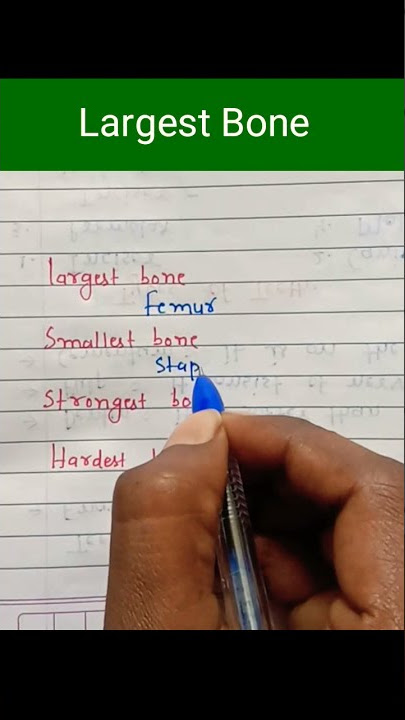 Largest Bone
largest bone
femur
Smallest bone
Stap
Strongest bo
Hardest